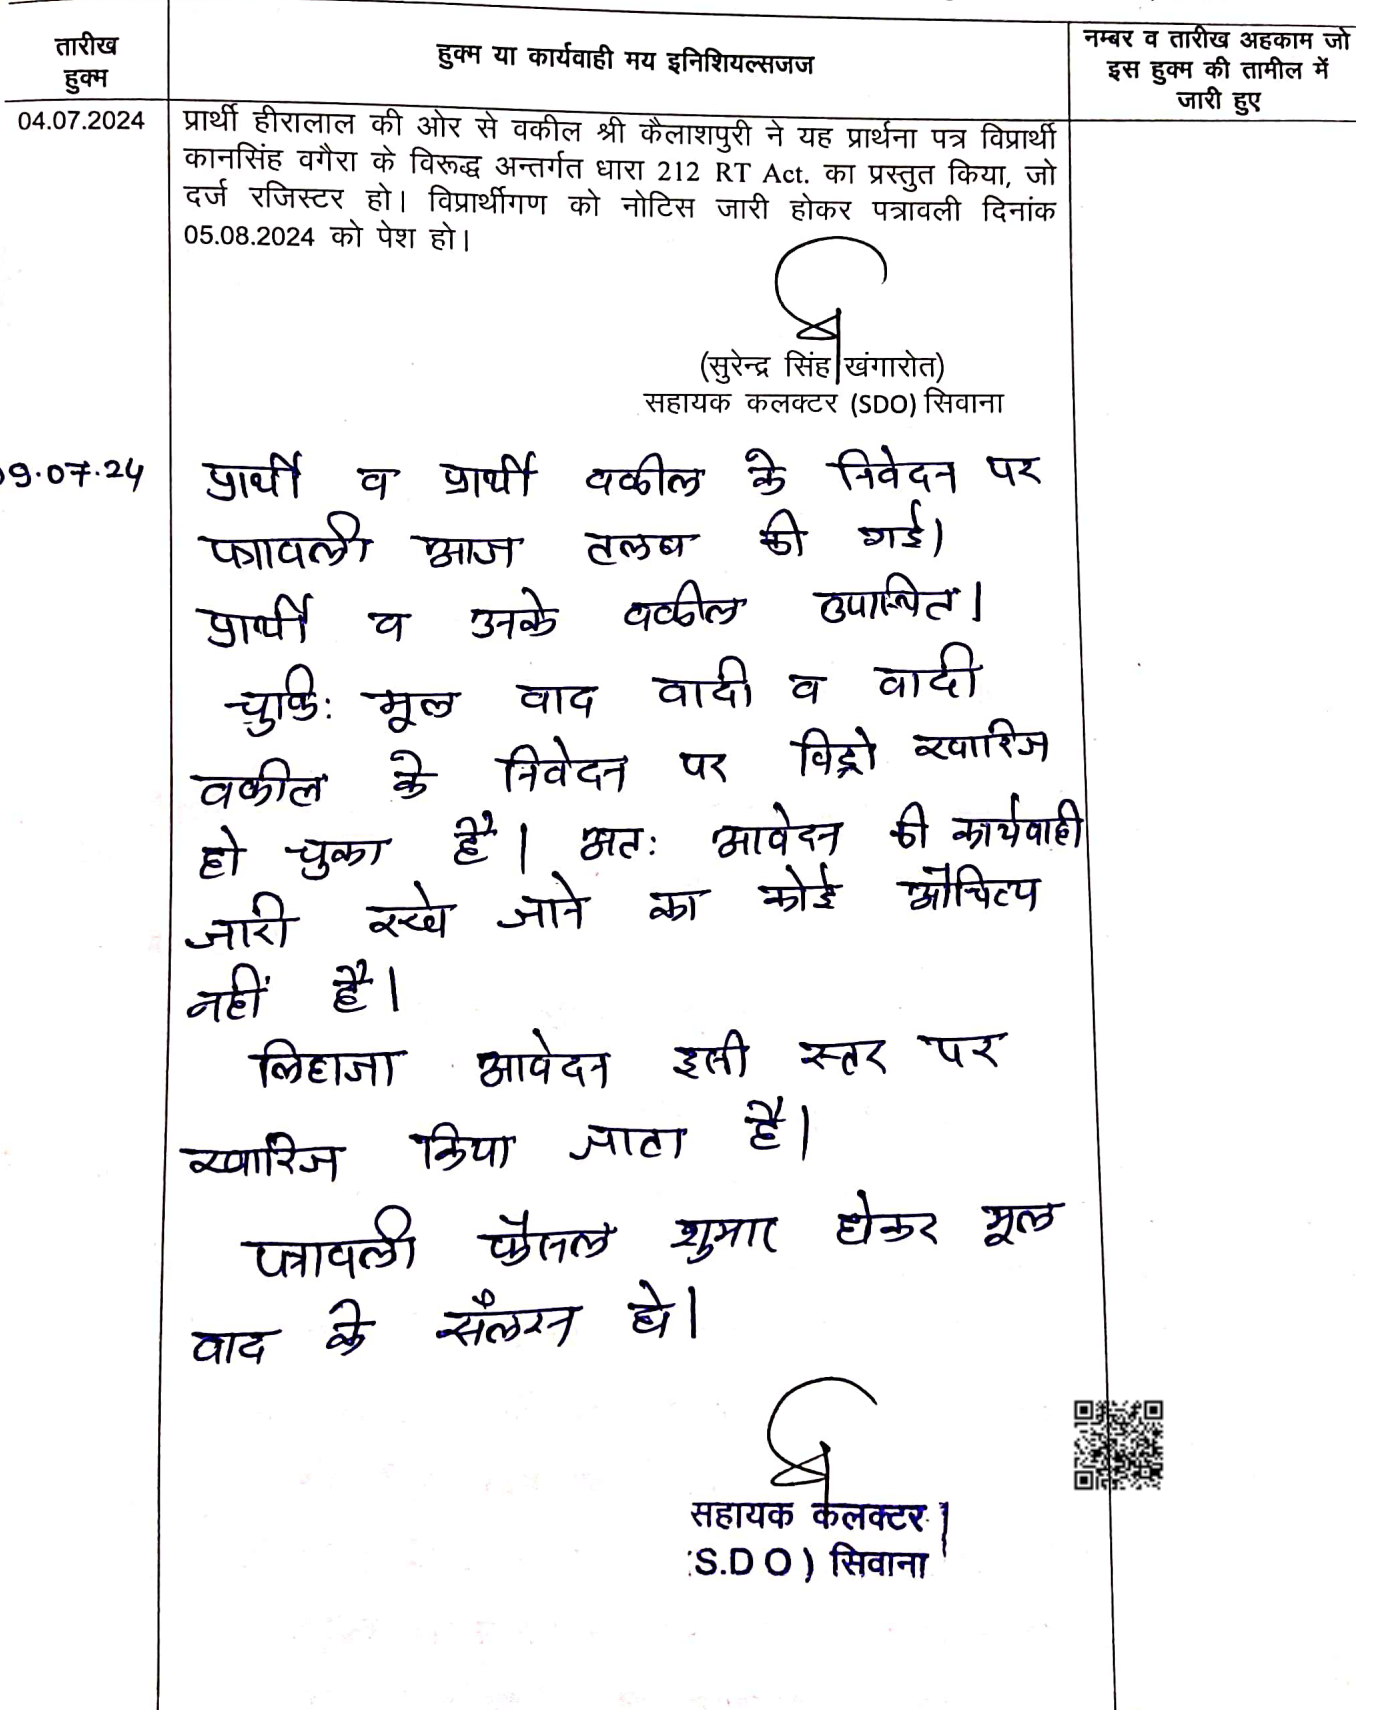 तारीख
हुक्म
हुक्म या कार्यवाही मय इनिशियल्सजज
नम्बर व तारीख अहकाम जो
इस हुक्म की तामील में
जारी हुए
04.07.2024
प्रार्थी हीरालाल की ओर से वकील श्री कैलाशपुरी ने यह प्रार्थना पत्र विप्रार्थी
कानसिंह वगैरा के विरूद्ध अन्तर्गत धारा 212 RT Act. का प्रस्तुत किया, जो
दर्ज रजिस्टर हो। विप्रार्थीगण को नोटिस जारी होकर पत्रावली दिनांक
05.08.2024 को पेश हो।
(सुरेन्द्र सिंह खंगारोत)
सहायक कलक्टर (SDO) सिवाना
09.07.24
प्रार्थी व प्रार्थी वकील के निवेदन पर
पत्रावली आज तलब की गई।
प्रार्थी व उनके वकील उपस्थित।
चुकि: मूल वाद वादी व वादी
वकील के निवेदन पर विड्रो खारिज
हो चुका है। अत: आवेदन की कार्यवाही
जारी रखे जाने का कोई औचित्य
नहीं है।
लिहाजा आवेदन इसी स्तर पर
खारिज किया जाता है।
पत्रावली फैसल शुमार होकर मूल
वाद के संलग्न हो।
सहायक कलक्टर
S.D O ) सिवाना